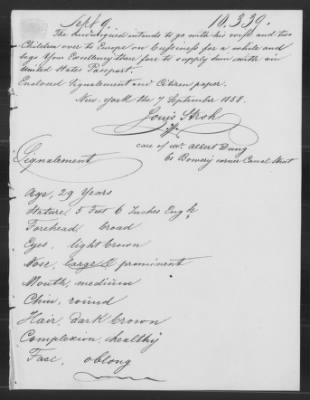 Sept 9. 10.339.
The undersigned intends to go with his wife and two
Children over to Europe on Business for a while and
begs Your Excellency therefore to supply him with an
United States Passport.
Enclosed Signalement and Citizen paper.
New-York the 7 September 1858.
Louis Stroh
care of Mr Albert
60 Bowery corner Canal Street
Signalement
Age, 29 Years
Stature, 5 Feet 6 Inches Engl.
Forehead, broad
Eyes, light brown
Nose, large & prominent
Mouth, medium
Chin, round
Hair, dark brown
Complexion, healthy
Face, oblong